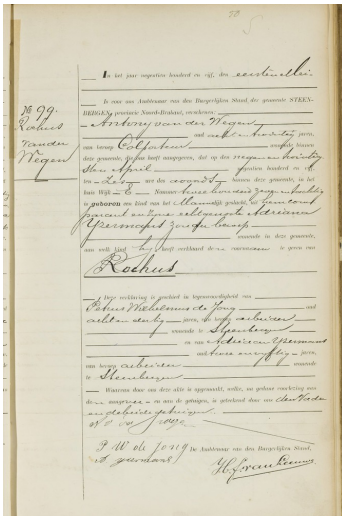 No 99.
Rochus
van der
Wegen
In het jaar negentien honderd en vijf, den eersten Mei
is voor ons Ambtenaar van den Burgerlijken Stand, der gemeente STEEN-
BERGEN, provincie Noord-Brabant, verschenen:
Antony van der Wegen
oud acht en twintig jaren,
van beroep Colporteur wonende binnen
deze gemeente, die ons heeft aangegeven, dat op den negen en twintig
sten April negentien honderd en vijf
ten zes ure des avonds binnen deze gemeente, in het
huis Wijk E Nummer twee honderd zeven en twintig
is geboren een kind van het Mannelijk geslacht, uit hem com-
parant en zijne echtgenoote Adriana
Ypermans zonder beroep
wonende in deze gemeente,
aan welk kind hij heeft verklaard den voornaam te geven van
Rochus
Deze verklaring is geschied in tegenwoordigheid van
Petrus Wilhelmus de Jong oud
acht en dertig jaren, van beroep arbeider
wonende te Steenbergen
en van Adriaan Ypermans
oud twee en vijftig jaren,
van beroep arbeider wonende
te Steenbergen
Waarvan door ons deze akte is opgemaakt, welke, na gedane voorlezing aan
de aangever en aan de getuigen, is geteekend door ons, den Vader
en de beide getuigen
P W de Jong
De Ambtenaar van den Burgerlijken Stand,